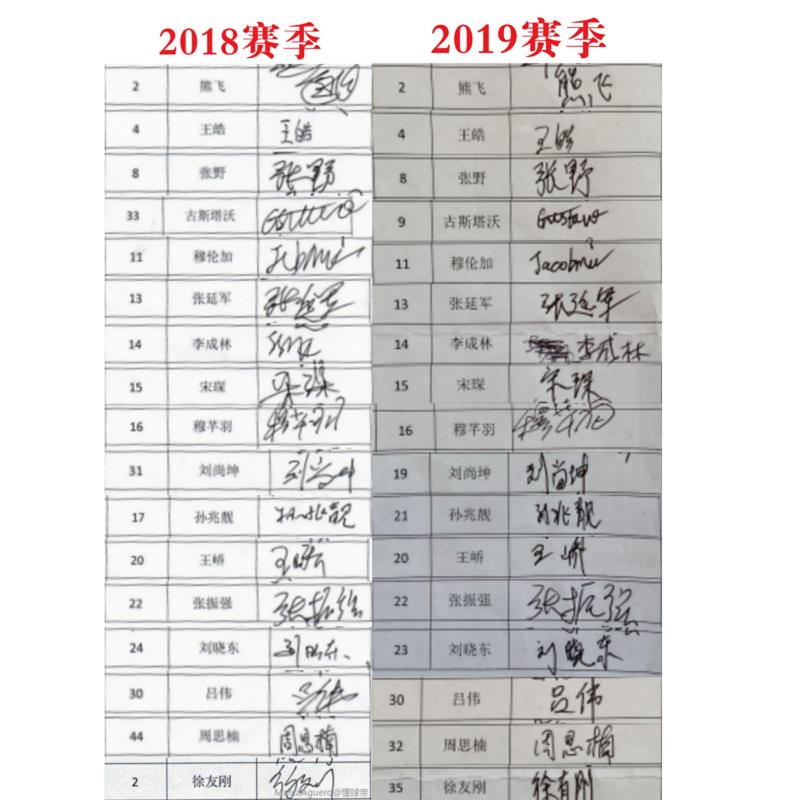 2018赛季 2019赛季
2 熊飞 2 熊飞 熊飞
4 王皓 王皓 4 王皓 王皓
8 张野 张野 8 张野 张野
33 古斯塔沃 9 古斯塔沃 Gustavo
11 穆伦加 11 穆伦加
13 张延军 张延军 13 张延军 张延军
14 李成林 14 李成林 李成林
15 宋琛 宋琛 15 宋琛 宋琛
16 穆芊羽 16 穆芊羽
31 刘尚坤 19 刘尚坤 刘尚坤
17 孙兆靓 孙兆靓 21 孙兆靓 孙兆靓
20 王峤 20 王峤 王峤
22 张振强 张振强 22 张振强 张振强
24 刘晓东 23 刘晓东 刘晓东
30 吕伟 30 吕伟 吕伟
44 周思楠 周思楠 32 周思楠 周思楠
2 徐友刚 35 徐友刚 徐有刚
@懂球帝